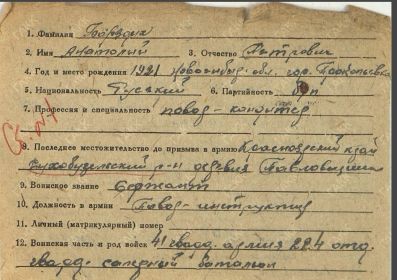 1. Фамилия
2. Имя Анатолий 3. Отчество Петрович
4. Год и место рождения 1921 Новосибир. обл. гор. Прокопьевск
5. Национальность Русский 6. Партийность б/п
7. Профессия и специальность повар - кондитер
8. Последнее местожительство до призыва в армию Красноярский край
Сухобузимский р-н деревня Павловщина
9. Воинское звание Сержант
10. Должность в армии Повар - инструктор
11. Личный (матрикулярный) номер
12. Воинская часть и род войск 41 гвард. армия 224 отд.
гвард. саперный батальон